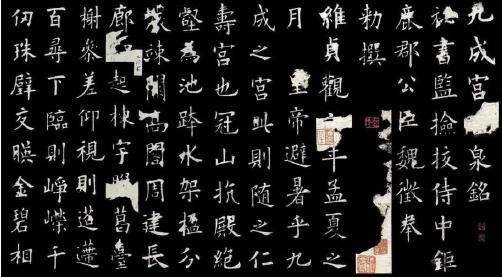 九成宮泉銘
祕書監撿挍侍中鉅
鹿郡公臣魏徵奉
勑撰
維貞觀年孟夏之
月 皇帝避暑乎九
成之宮此則隨之仁
壽宮也冠山抗殿絕
壑為池跨水架楹分
竦闕高閣周建長
廊起棟宇葛臺
榭參差仰視則迢遰
百尋下臨則崢嶸千
仞珠璧交暎金碧相